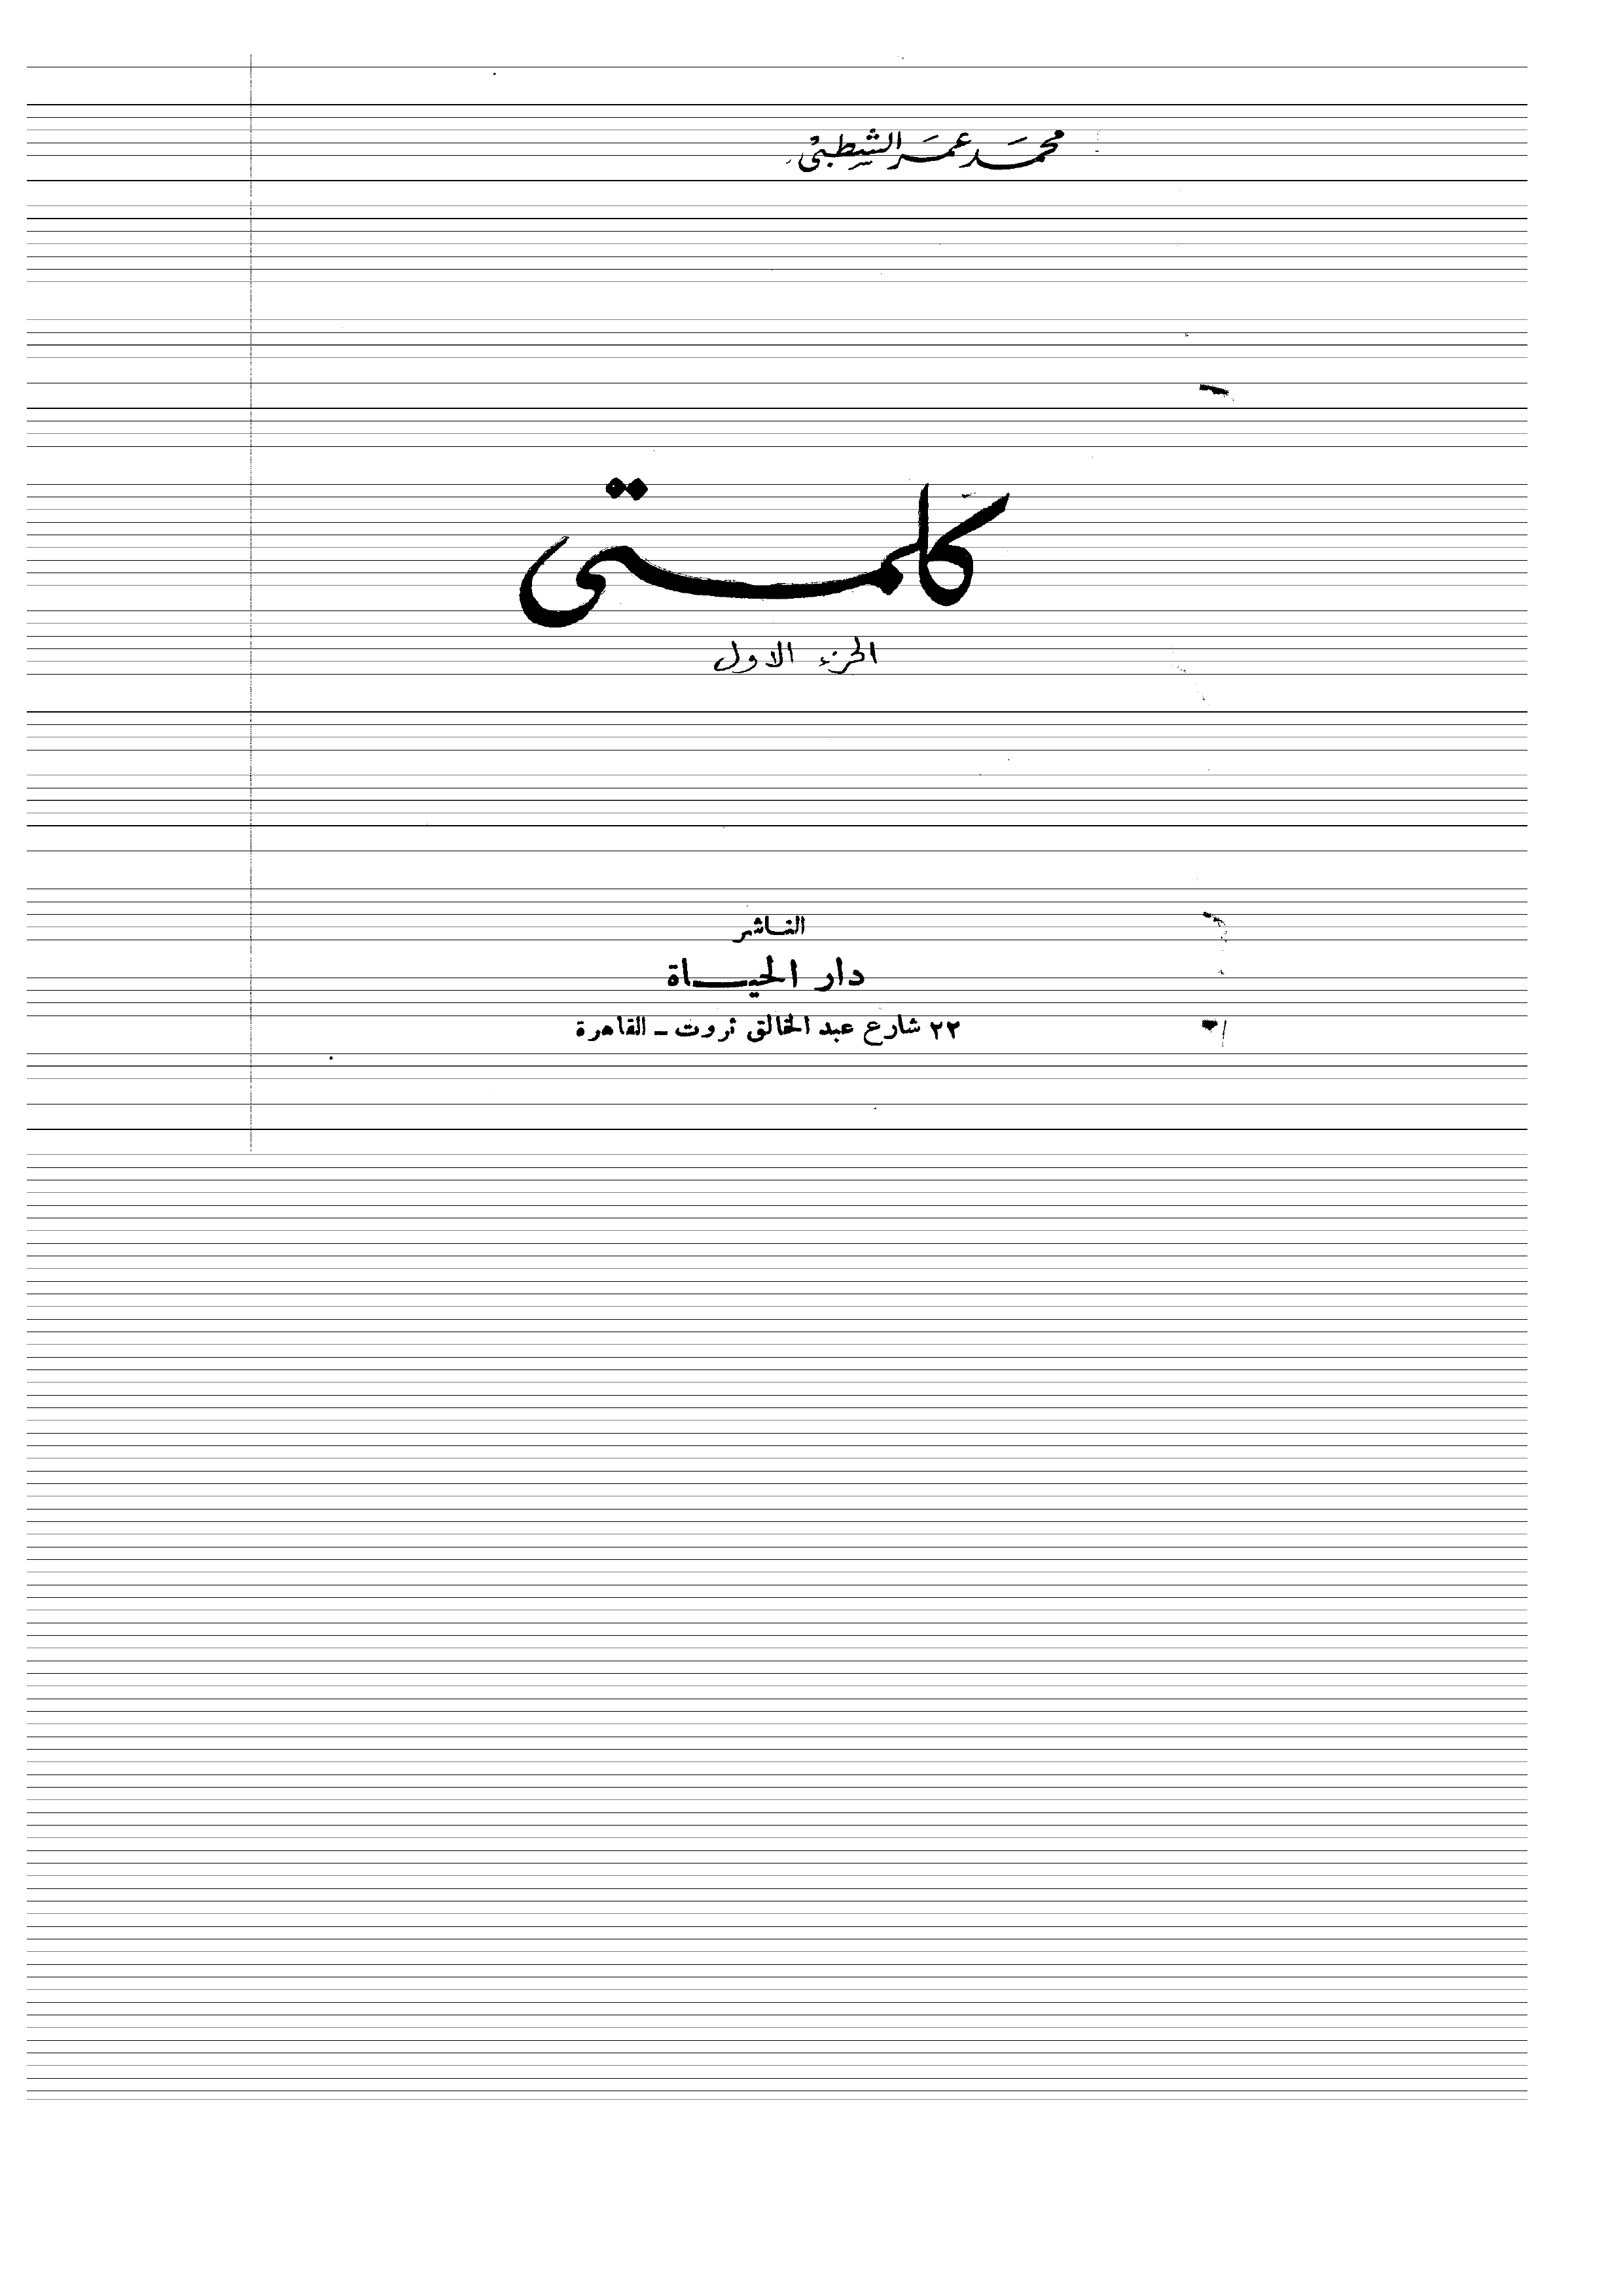 محمد عمر الشطبى
كلمتى
الجزء الاول
الناشر
دار الحياة
٢٢ شارع عبد الخالق ثروت - القاهرة